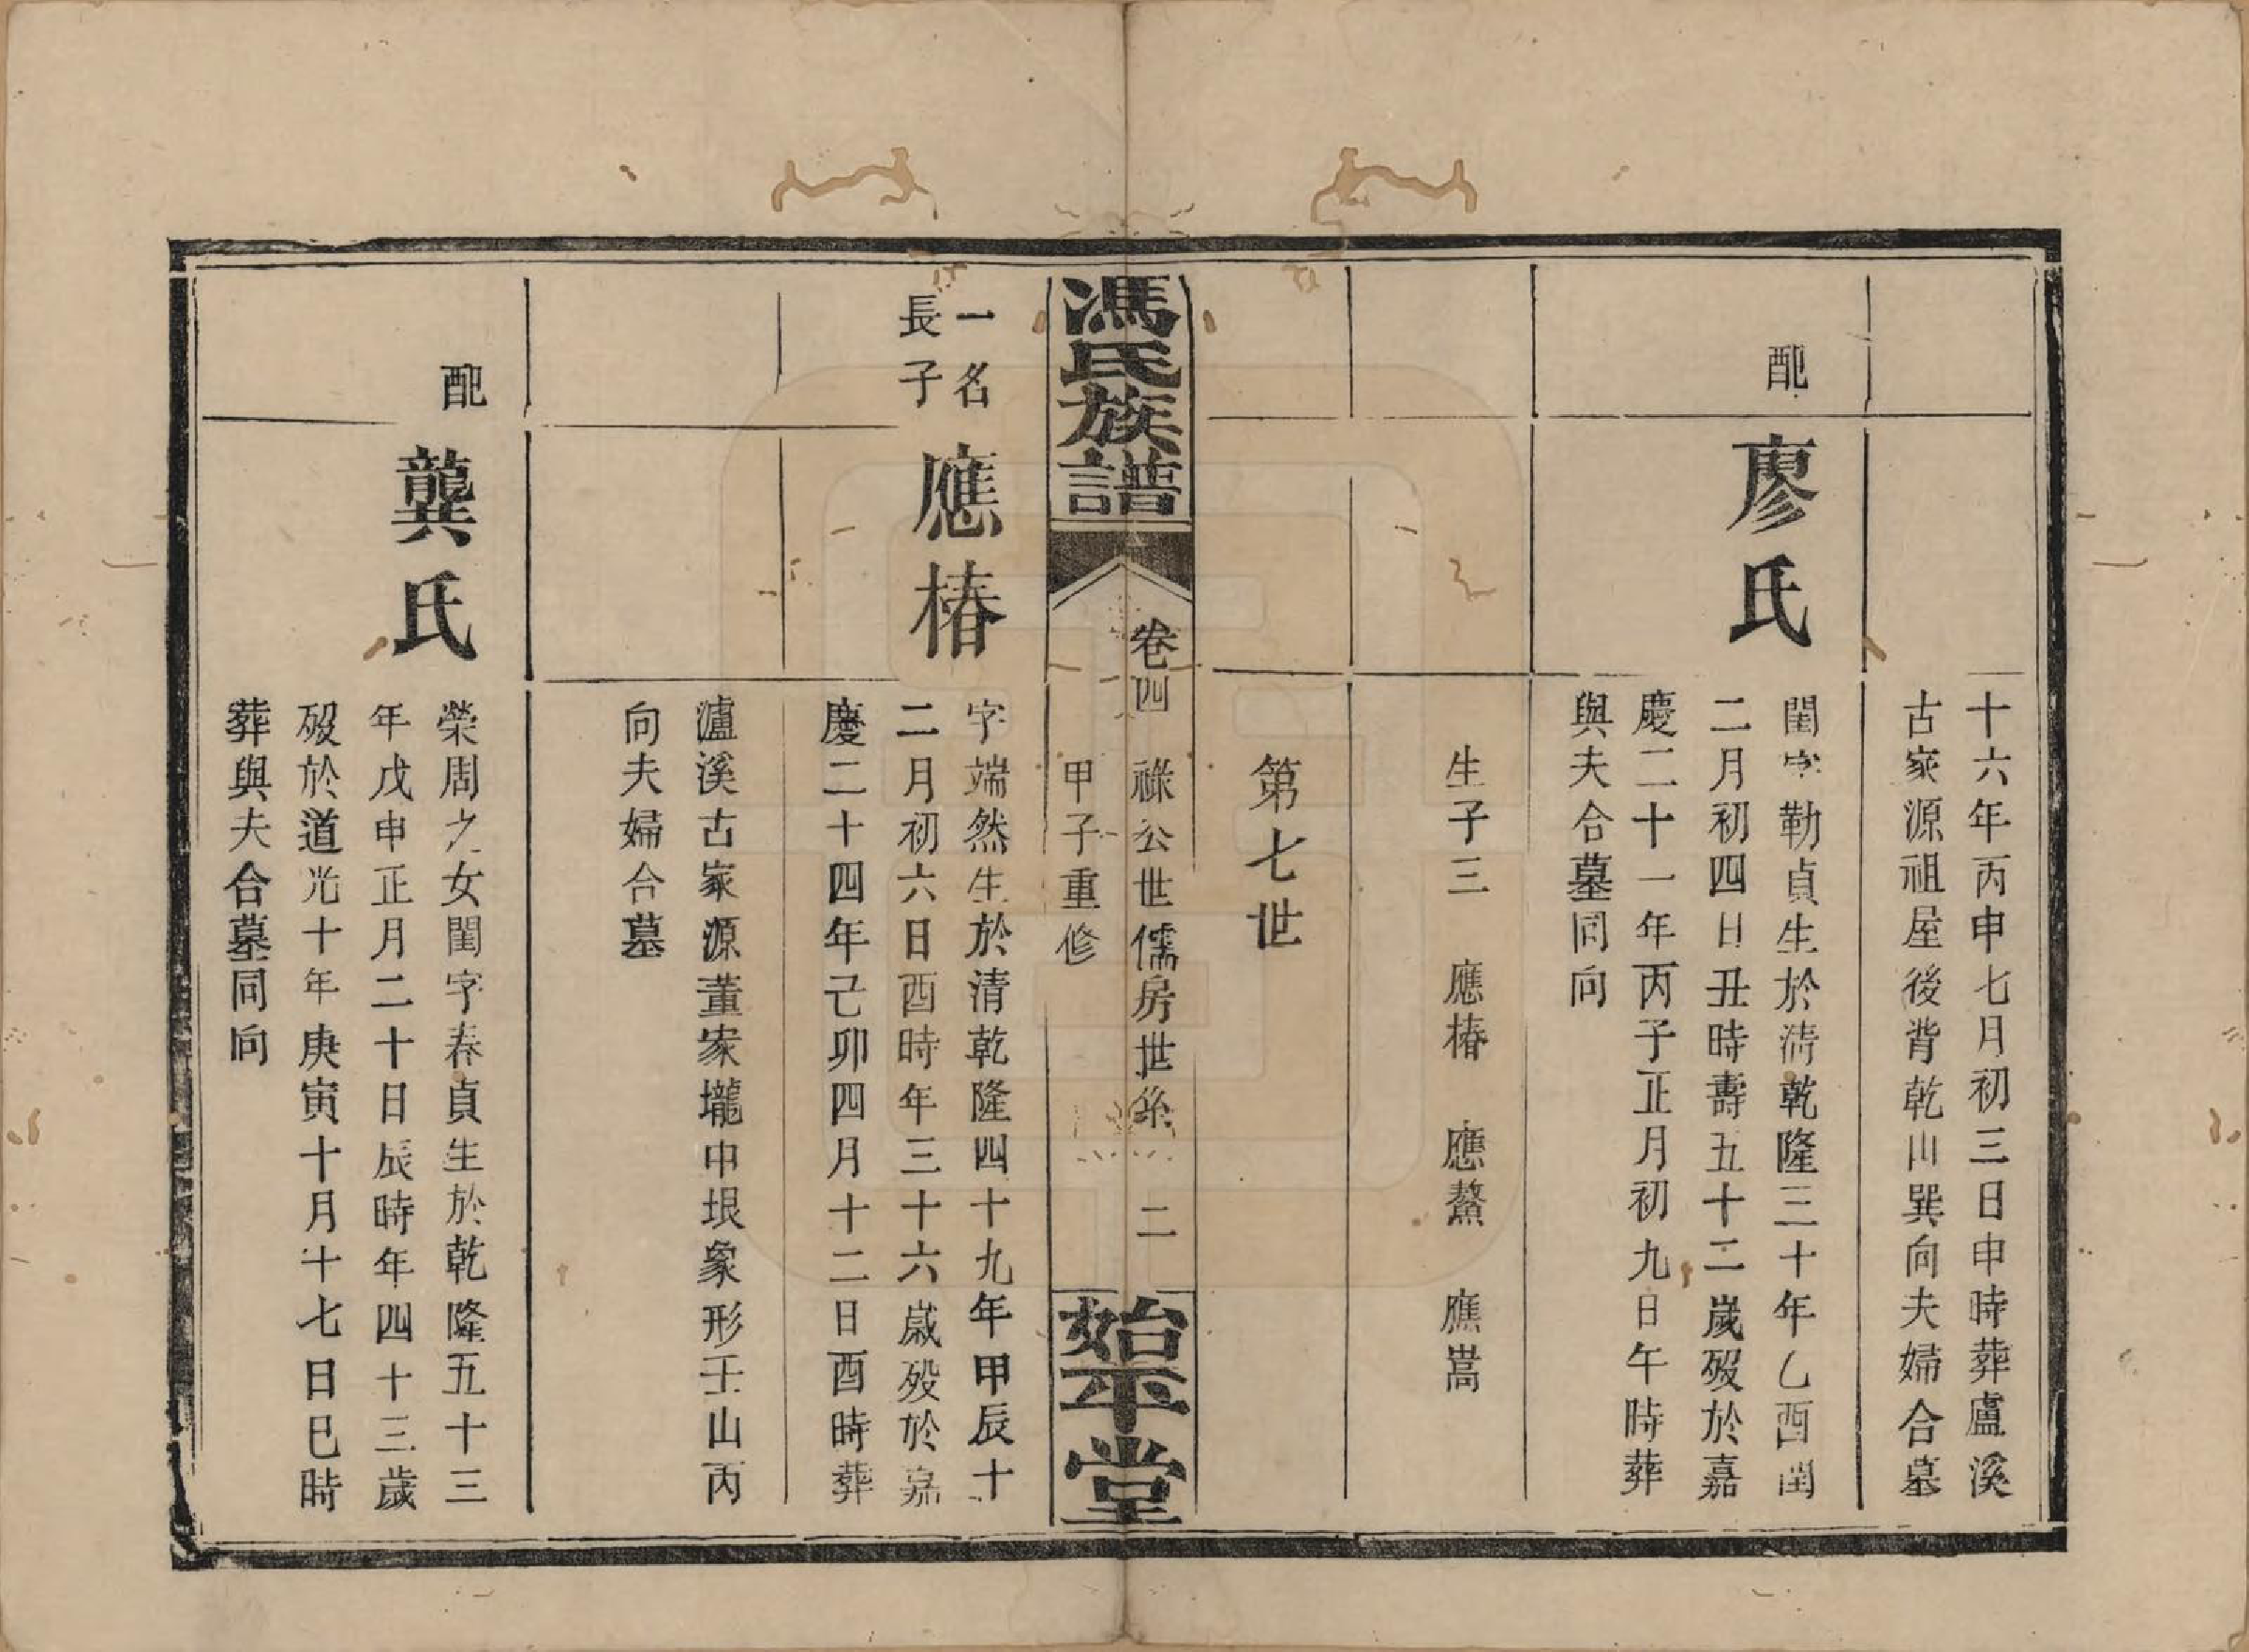 十六年丙申七月初三日申時葬盧溪
古家源祖屋後背乾山巽向夫婦合墓
配
廖氏
閨字勒貞生於淸乾隆三十年乙酉閏
二月初四日丑時壽五十二歲歿於嘉
慶二十一年丙子正月初九日午時葬
與夫合墓同向
生子三 應椿 應鰲 應嵩
第七世
馮氏族譜
卷四 祿公世儒房世系 二
甲子重修
始平堂
一名
長子
應椿
字端然生於清乾隆四十九年甲辰十
二月初六日酉時年三十六歲歿於嘉
慶二十四年己卯四月十二日酉時葬
瀘溪古家源董家壠中垠象形壬山丙
向夫婦合墓
配
龔氏
榮周之女閨字春貞生於乾隆五十三
年戊申正月二十日辰時年四十三歲
歿於道光十年庚寅十月十七日巳時
葬與夫合墓同向